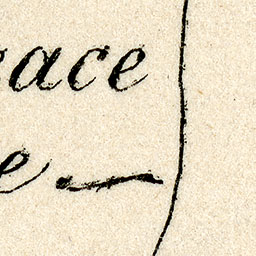 eace
e.—